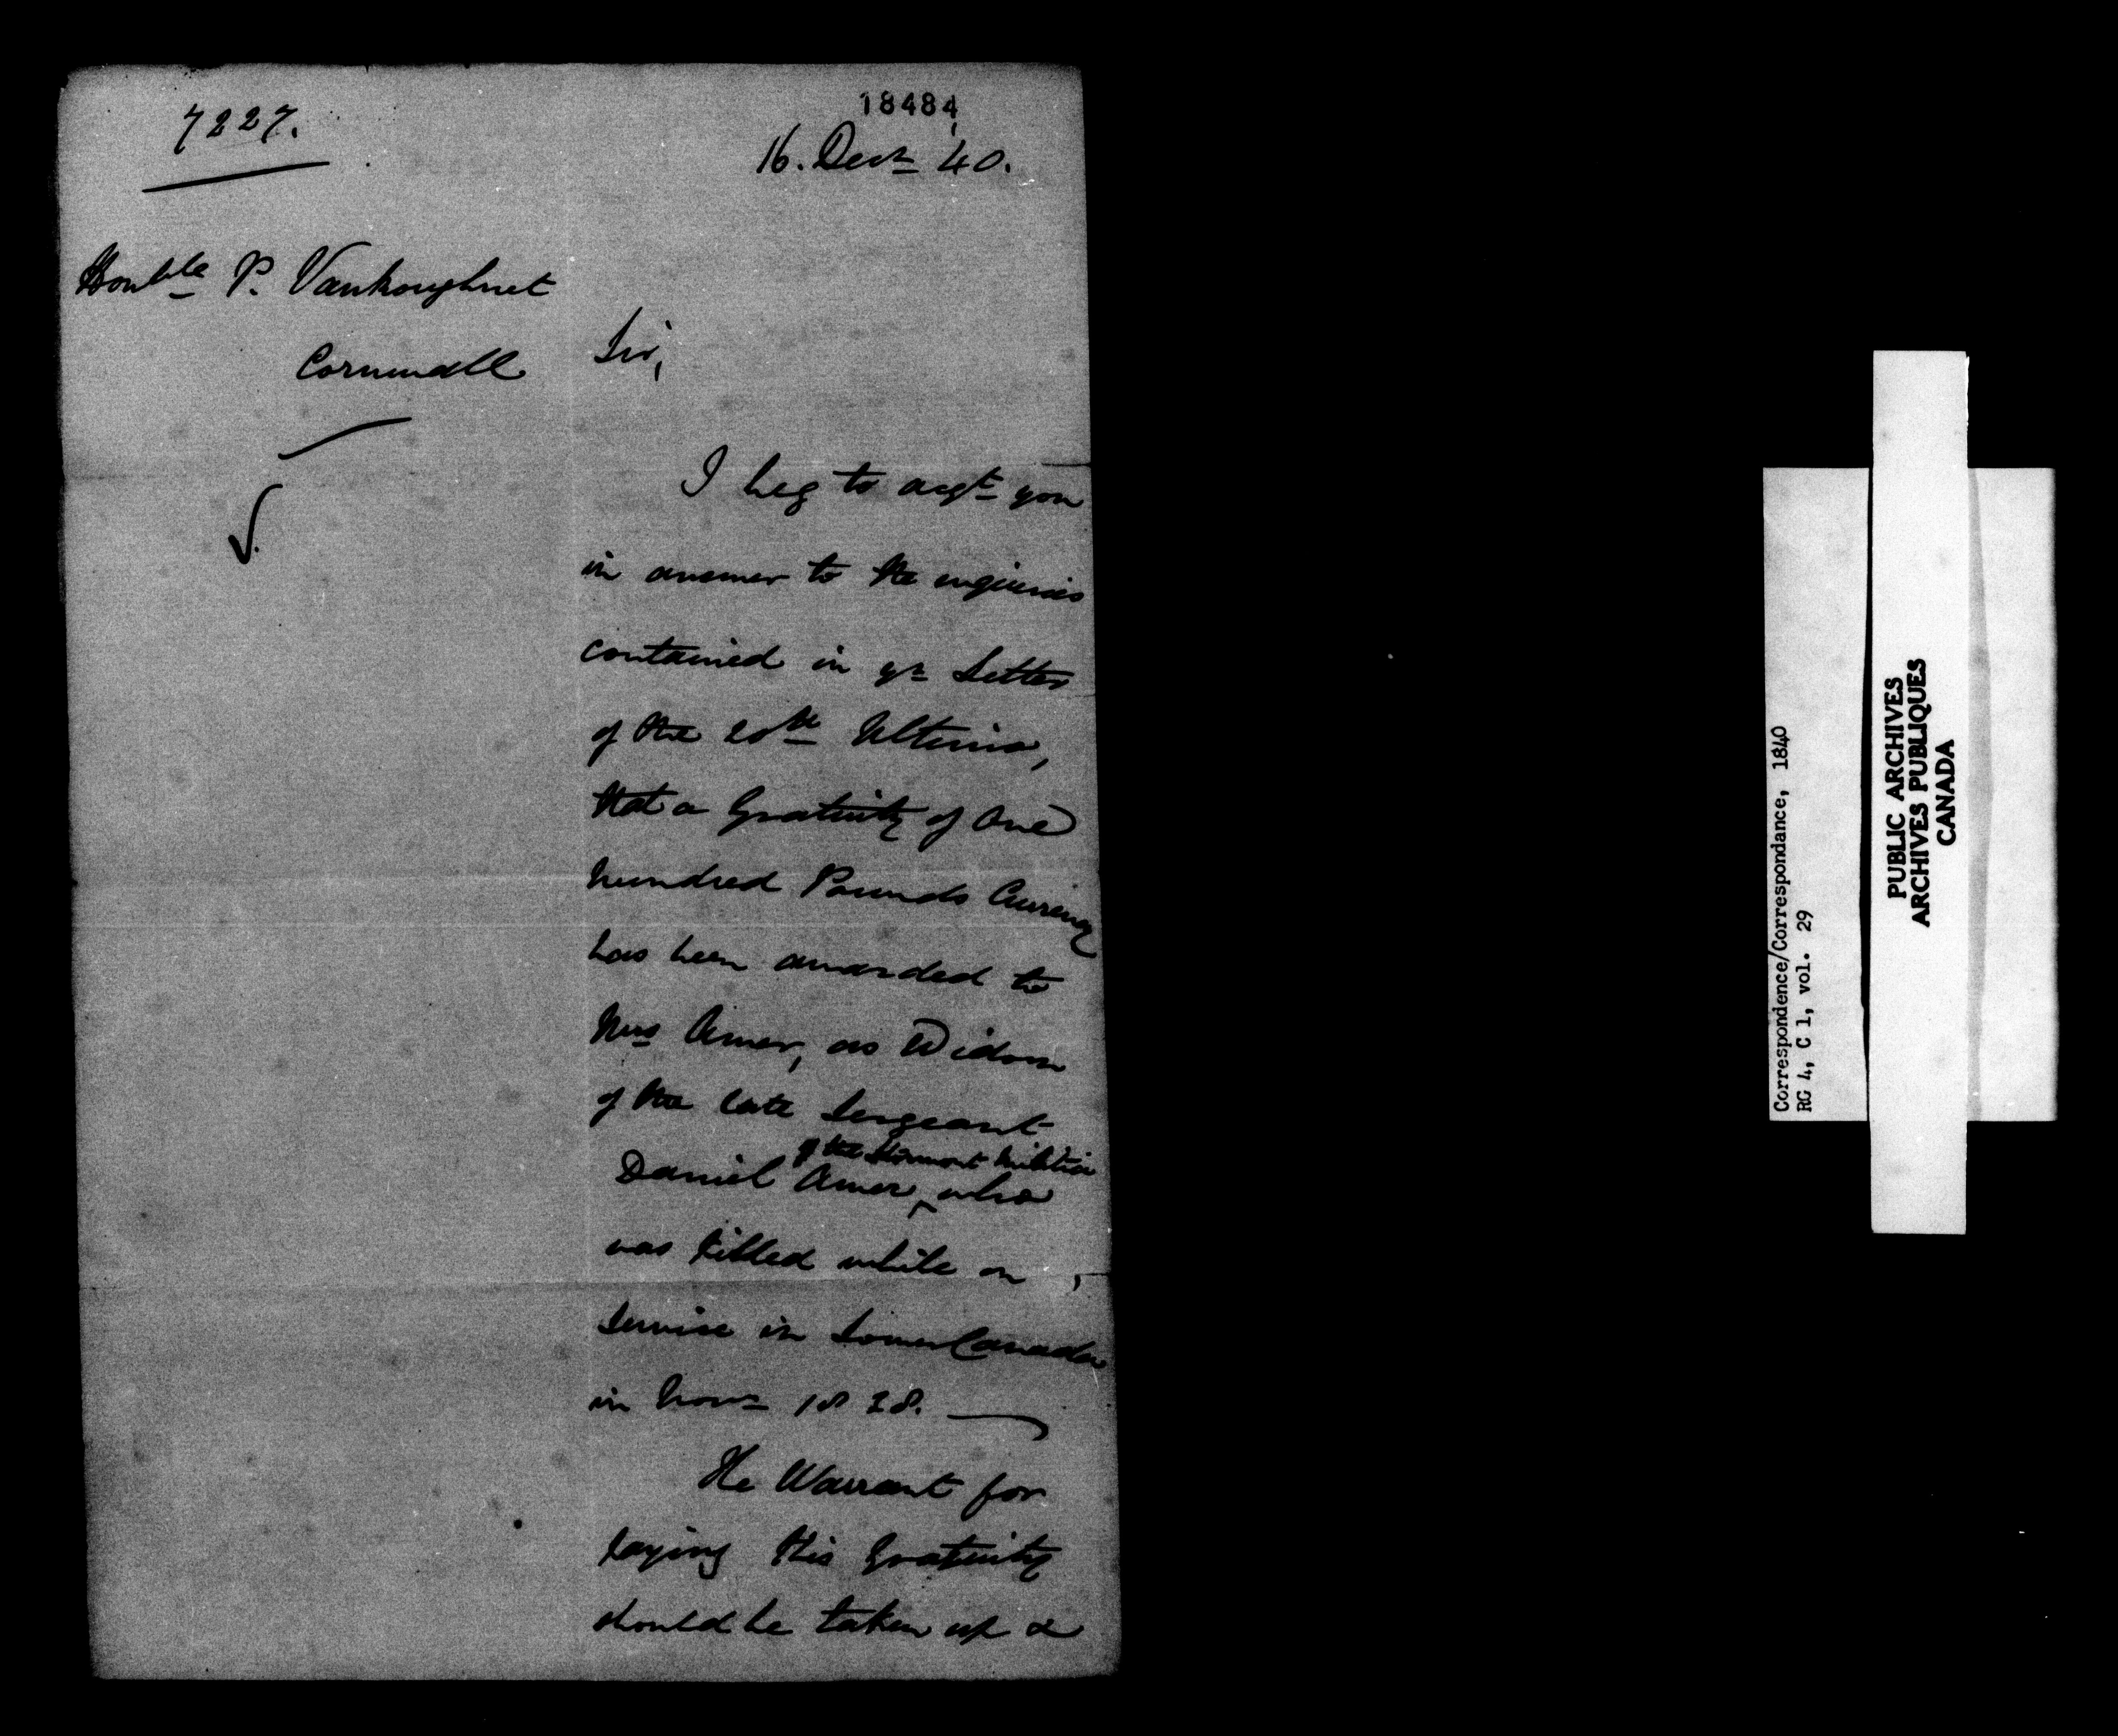 7227.
18484
16. Decr 40.
Honble P. Vankoughnet
Cornwall
Sir,
I beg to acqt you
in answer to the enquiries
contained in yr Letter
of the 20th Ultimo,
that a Gratuity of One
hundred Pounds Currency
has been awarded to
Mrs Amer, as Widow
of the late Sergeant
of the Stormont Militia
Daniel Amer, ^ who
was killed while on
Service in Lower Canada
in Novr 1838.
The Warrant for
paying this Gratuity
should be taken up &
Correspondence/Correspondance, 1840
RG 4, C 1, vol. 29
PUBLIC ARCHIVES
ARCHIVES PUBLIQUES
CANADA